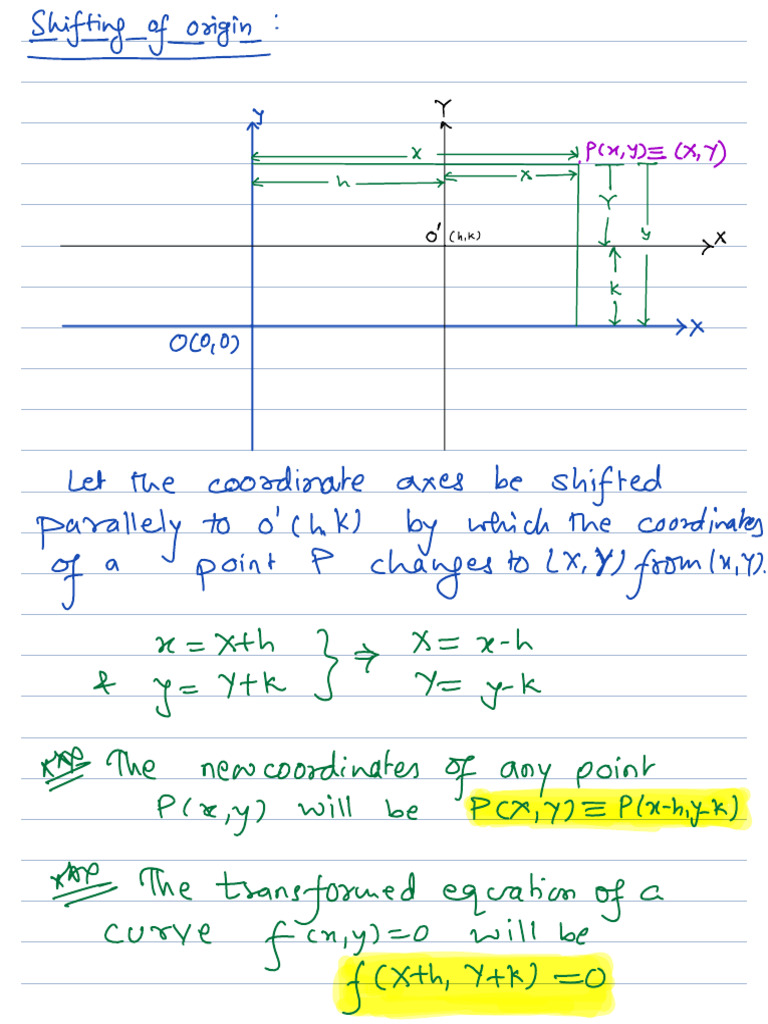 Shifting of origin :
y
Y
x
P(x,y)≡ (X,Y)
h
X
Y
y
O' (h,k)
X
k
X
O(0,0)
Let the coordinate axes be shifted
parallely to O'(h,k) by which the coordinates
of a point P changes to (X,Y) from (x,y).
x = X+h } ⇒ X = x-h
& y = Y+k Y = y-k
The new coordinates of any point
P(x,y) will be P(X,Y) ≡ P(x-h,y-k)
The transformed equation of a
curve f(x,y)=0 will be
f(X+h, Y+k) =0